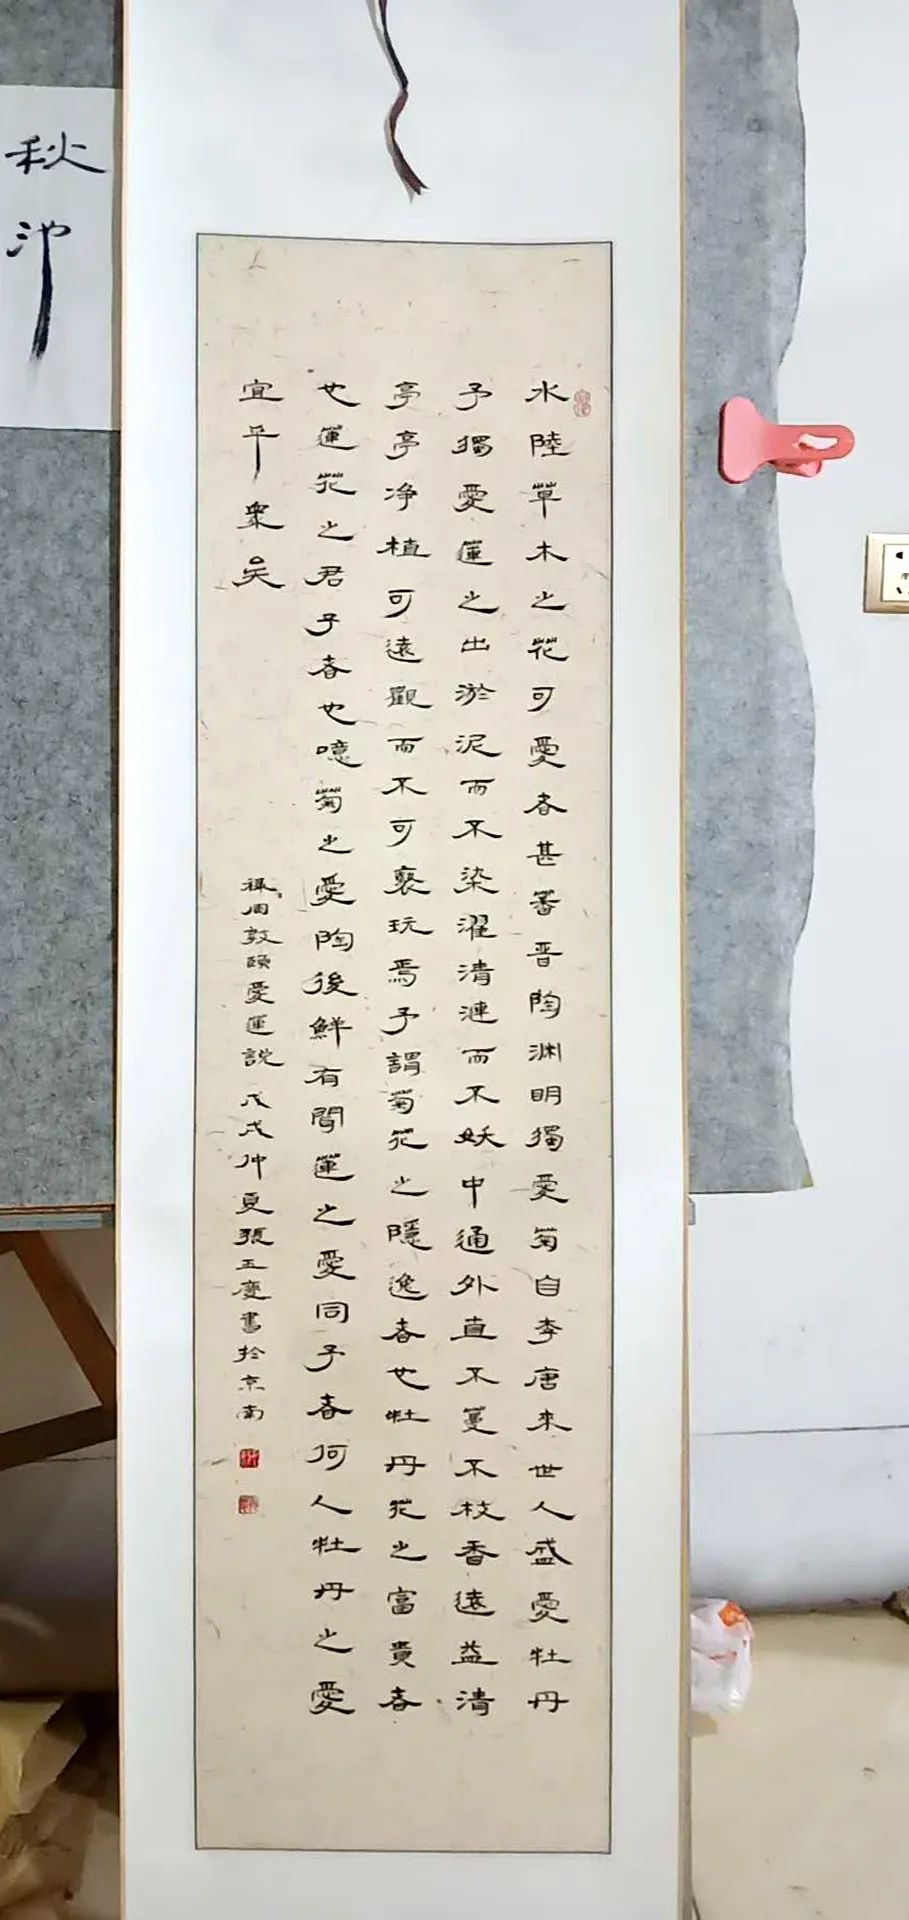 水陸草木之花可愛者甚蕃晋陶渊明獨愛菊自李唐來世人盛愛牡丹
予獨愛蓮之出淤泥而不染濯清漣而不妖中通外直不蔓不枝香遠益清
亭亭净植可遠觀而不可褻玩焉予謂菊花之隱逸者也牡丹花之富貴者
也蓮花之君子者也噫菊之愛陶後鮮有聞蓮之愛同予者何人牡丹之愛
宜乎衆矣
周敦頤愛蓮説戊戌仲夏張玉慶書於京南
秋池